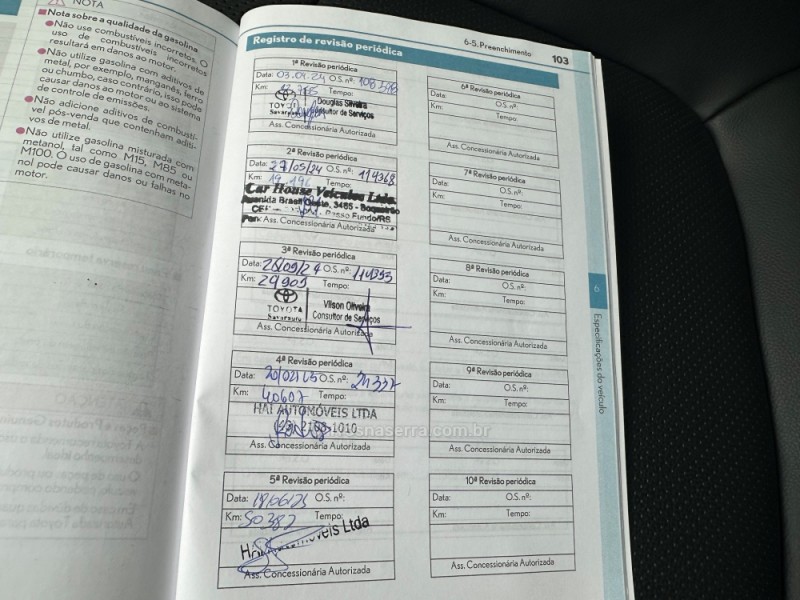 NOTA
Nota sobre a qualidade da gasolina
Não use combustíveis incorretos. O
uso de combustíveis incorretos
resultará em danos ao motor.
Não utilize gasolina com aditivos de
metal, por exemplo, manganês, ferro
ou chumbo, caso contrário, isso pode
causar danos ao motor ou ao sistema
de controle de emissões.
Não adicione aditivos de combustí-
vel pós-venda que contenham aditi-
vos de metal.
Não utilize gasolina misturada com
metanol, tal como M15, M85 ou
M100. O uso de gasolina com meta-
nol pode causar danos ou falhas no
motor.
6-5. Preenchimento 103
Registro de revisão periódica
1ª Revisão periódica
Data: O.S. nº:
Km: Tempo:
TOYOTA
Douglas Silveira
Consultor de Serviços
Ass. Concessionária Autorizada
2ª Revisão periódica
Data: 27/05/24 O.S. nº: 114368
Km: Tempo:
Car House Veículos Ltda.
Avenida Brasil Oeste, 3465 - Boqueirão
Passo Fundo/RS
Ass. Concessionária Autorizada
3ª Revisão periódica
Data: O.S. nº:
Km: 29905 Tempo:
TOYOTA
Vilson Oliveira
Consultor de Serviços
Ass. Concessionária Autorizada
4ª Revisão periódica
Data: O.S. nº:
Km: 40607 Tempo:
HAI AUTOMÓVEIS LTDA
1010
Ass. Concessionária Autorizada
5ª Revisão periódica
Data: O.S. nº:
Km: 50382 Tempo:
Ltda
Ass. Concessionária Autorizada
6ª Revisão periódica
Data: O.S. nº:
Km: Tempo:
Ass. Concessionária Autorizada
7ª Revisão periódica
Data: O.S. nº:
Km: Tempo:
Ass. Concessionária Autorizada
8ª Revisão periódica
Data: O.S. nº:
Km: Tempo:
Ass. Concessionária Autorizada
9ª Revisão periódica
Data: O.S. nº:
Km: Tempo:
Ass. Concessionária Autorizada
10ª Revisão periódica
Data: O.S. nº:
Km: Tempo:
Ass. Concessionária Autorizada
6
Especificações do veículo